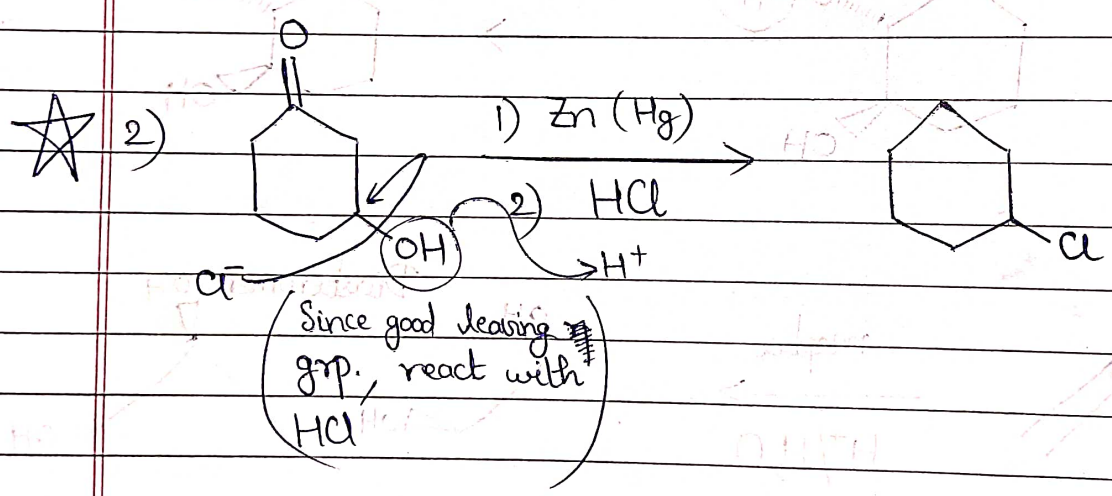 O
1) Zn (Hg)
2)
2) HCl
OH
H+
Cl-
Cl
(Since good leaving
grp., react with
HCl)